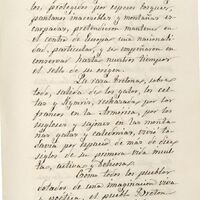 los, protegidos por espesos bosques,
pantanos inaccesibles y montañas es-
carpadas, pretendieron mantener en
el centro de Europa una nacionali-
dad particular, y se empeñaron en
conservar hasta nuestros tiempos
el sello de su origen.
La raza bretona, sobre
todo, salida de los galos, los cel-
tas y Kymris, rechazada por los
francos en la Armórica, por los
ingleses y sajones en las monta-
ñas galas y caledonias, vivió toda-
vía por espacio de mas de diez
siglos de su primera vida inculta,
activa y belicosa.
Como todos los pueblos
dotados de una imaginacion viva
y poética, el pueblo Breton